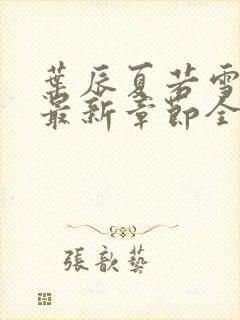 葉辰夏若雪
最新章節全
張歆藝